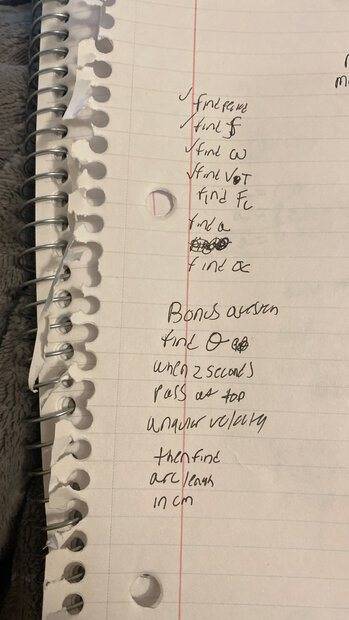 ✓ find period
✓ find f
✓ find ω
✓ find V T
find Fc
find a
find α
Bonus question
find θ
when 2 seconds
Pass at top
angular velocity
then find
arc length
in cm